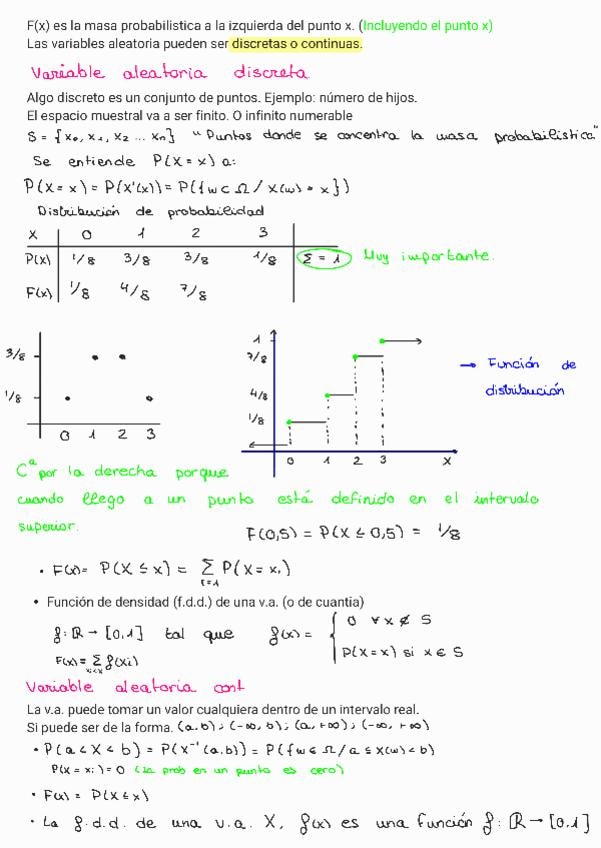 F(x) es la masa probabilistica a la izquierda del punto x. (Incluyendo el punto x)
Las variables aleatoria pueden ser discretas o continuas.
Variable aleatoria discreta
Algo discreto es un conjunto de puntos. Ejemplo: número de hijos.
El espacio muestral va a ser finito. O infinito numerable
S = {x₀, x₁, x₂ ... xₙ} "Puntos donde se concentra la masa probabilística"
Se entiende P(X = x) a:
P(X = x) = P(x'(x)) = P({w ⊂ Ω / X(w) = x})
Distribución de probabilidad
X 0 1 2 3
P(x) 1/8 3/8 3/8 1/8 Σ = 1 Muy importante.
F(x) 1/8 4/8 7/8
3/8
1/8
0 1 2 3
1
7/8
4/8
1/8
0 1 2 3 X
→ Función de
distribución
Cª por la derecha porque
cuando llego a un punto está definido en el intervalo
superior.
F(0,5) = P(X ≤ 0,5) = 1/8
• F(x) = P(X ≤ x) = Σ P(X = xᵢ)
i=1
• Función de densidad (f.d.d.) de una v.a. (o de cuantia)
f: ℝ → [0,1] tal que f(x) = { 0 ∀ x ∉ S
P(X = x) si x ∈ S
F(x) = Σ f(xi)
xi<x
Variable aleatoria cont
La v.a. puede tomar un valor cualquiera dentro de un intervalo real.
Si puede ser de la forma. (a,b); (-∞, b); (a, +∞); (-∞, +∞)
• P(a < X < b) = P(X⁻¹(a,b)) = P({w ∈ Ω / a ≤ X(w) < b)
P(X = xi) = 0 (la prob en un punto es cero)
• F(x) = P(X ≤ x)
• La f.d.d. de una v.a. X, f(x) es una función f: ℝ → [0,1]